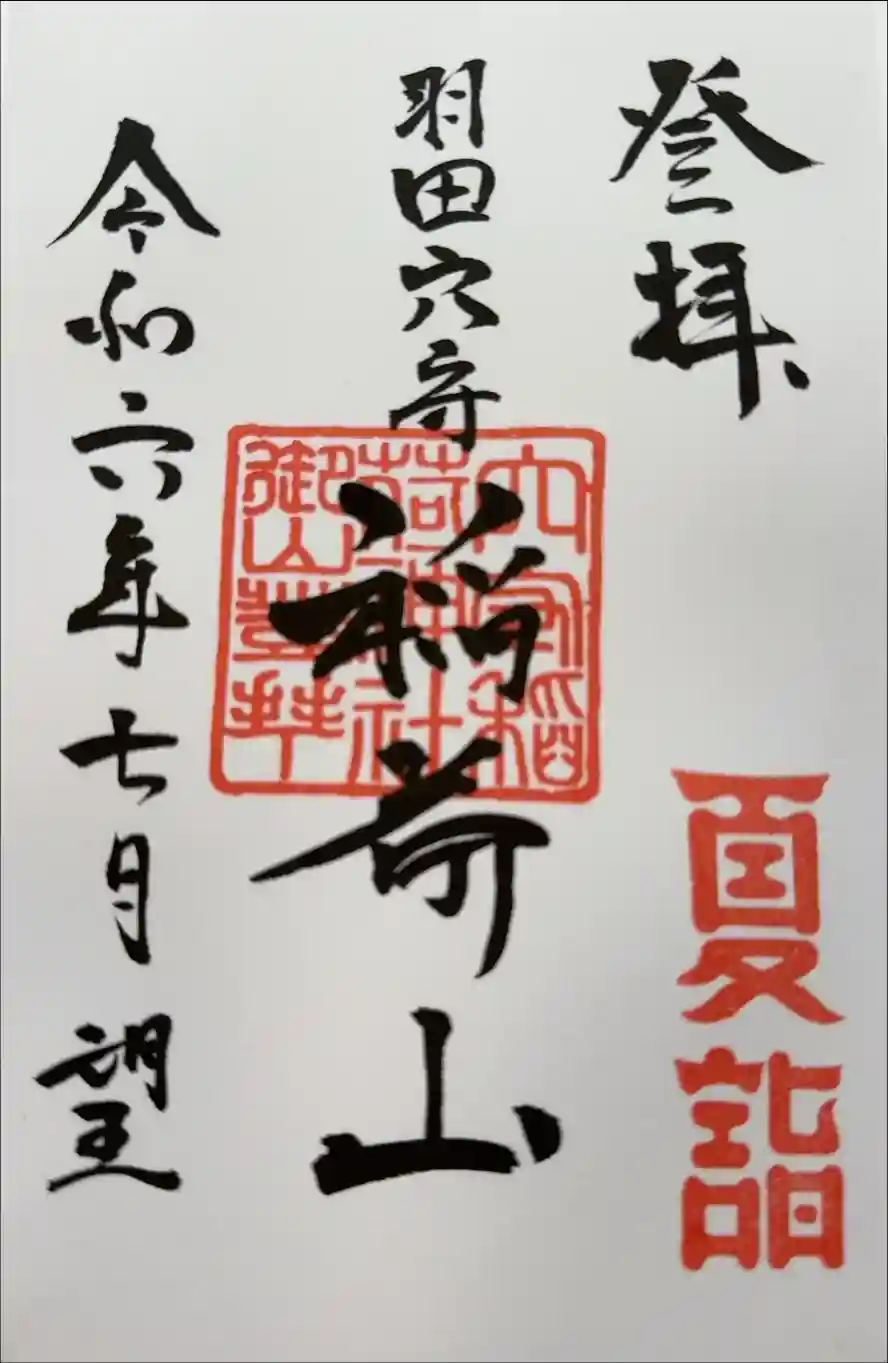 登拝
夏詣
羽田穴守
稲荷山
穴守稲
荷神社
御山登拝
令和六年七月 望